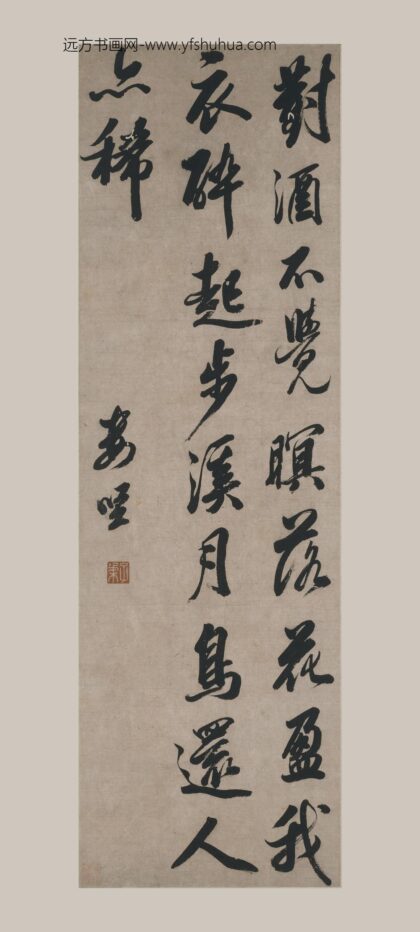 远方书画网-www.yfshuhua.com
對酒不覺暝落花盈我
衣醉起步溪月鳥還人
亦稀
婁堅